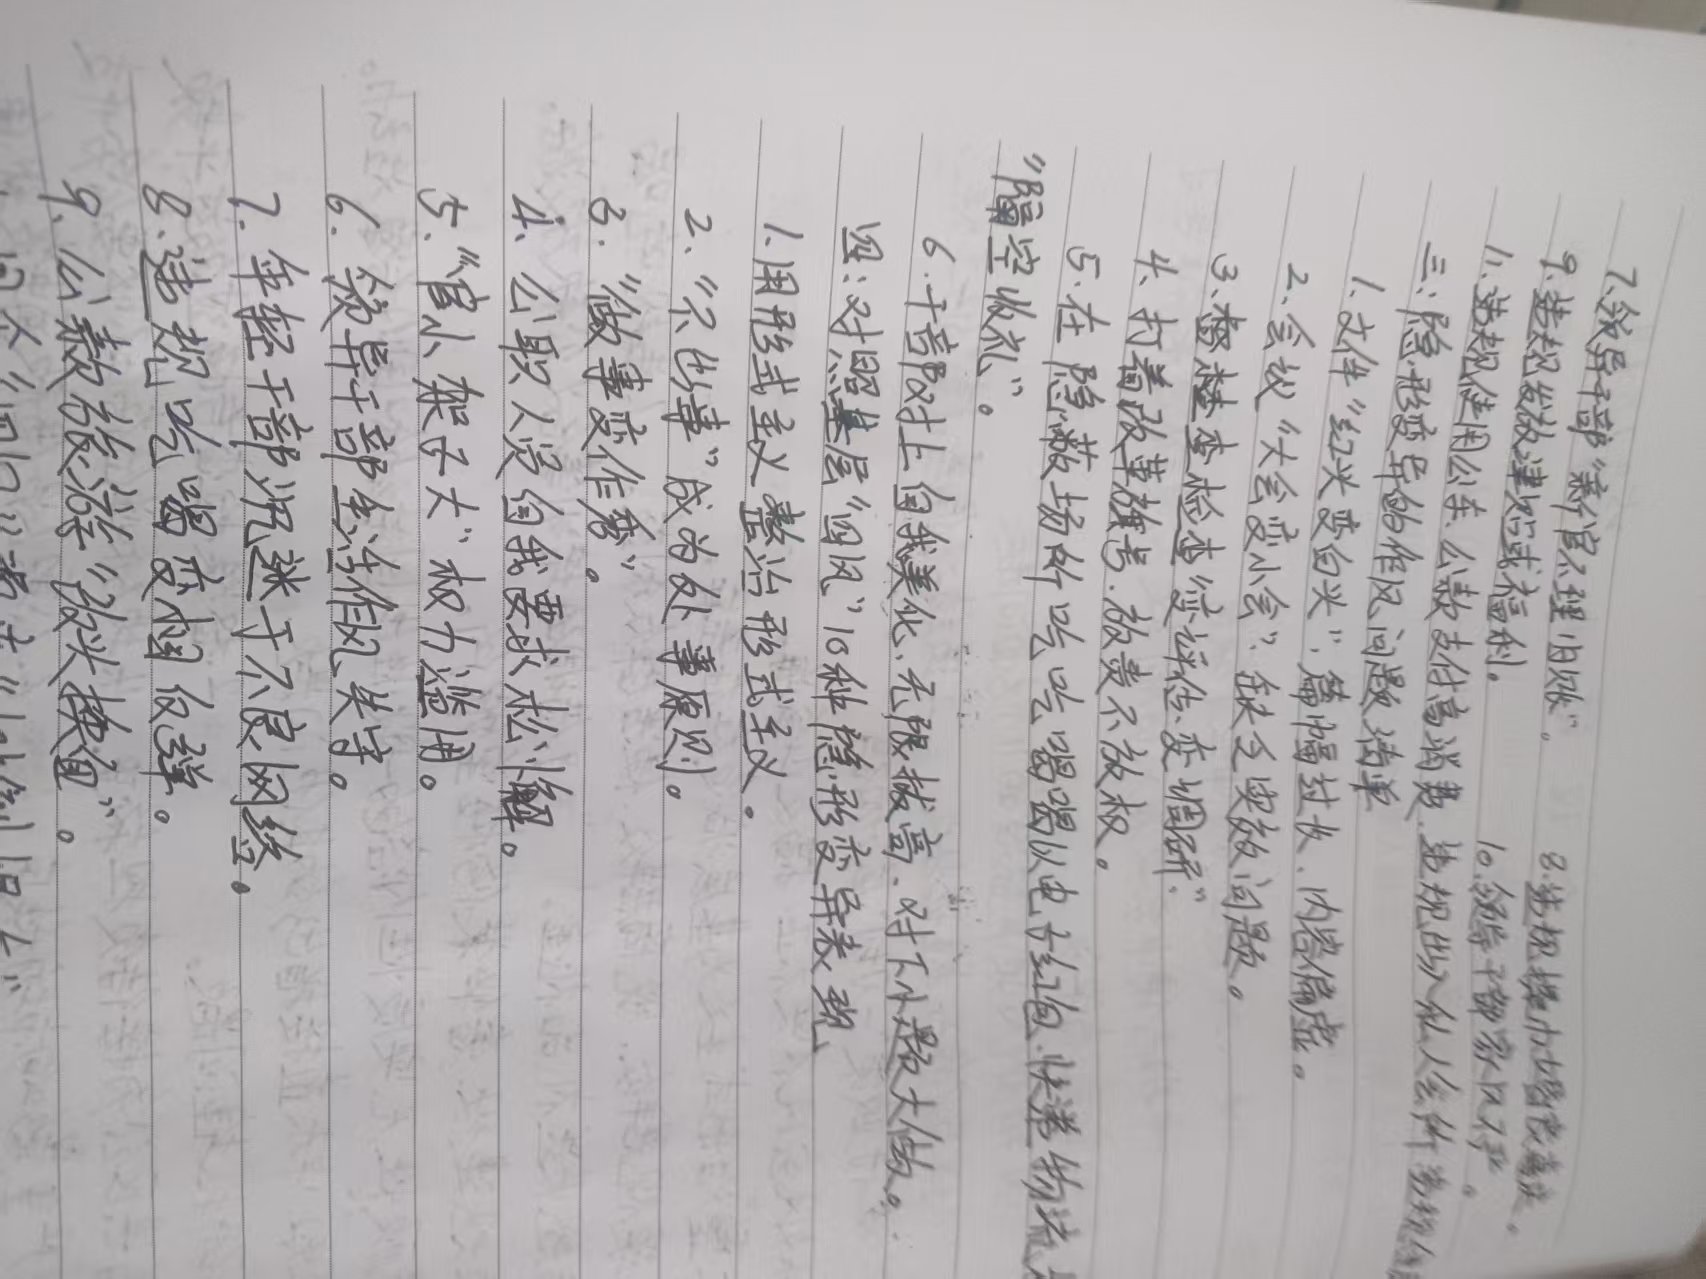 7.领导干部"新官不理旧账"。 8.违规操办婚丧喜庆。
9.违规发放津贴或福利。 10.领导干部家风不严。
11.违规使用公车、公款支付高消费、违规出入私人会所
三:隐形变异的作风问题清单
1.文件"红头变白头",篇幅过长、内容偏虚。
2.会议"大会变小会",缺乏实效问题。
3.督查检查"变评估、变调研"。
4.打着改革旗号,放责不放权。
5.在隐蔽场所吃吃喝喝以电子红包、快递物流
"隔空收礼"。
6.干部对上自我美化、无限拔高、对下小题大做。
四:对照基层"四风"10种隐形变异表现
1.用形式主义整治形式主义。
2."不出事"成为处事原则。
3."做事变作秀"。
4.公职人员自我要求松懈。
5."官小架子大"权力滥用。
6.领导干部生活作风失守。
7.年轻干部沉迷于不良网络。
8.违规吃喝变相反弹。
9.公款旅游"改头换面"。